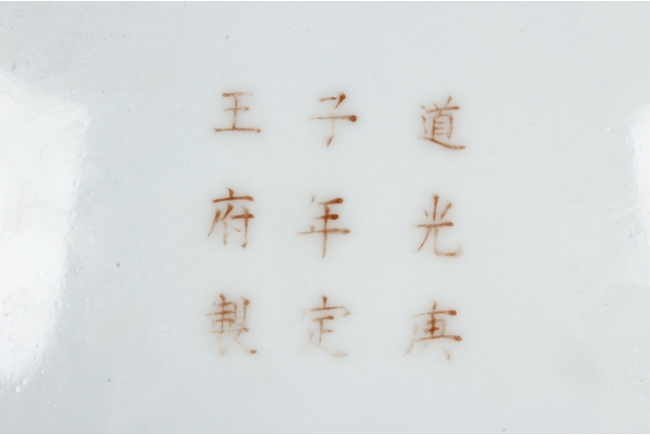 道光庚
子年定
王府製